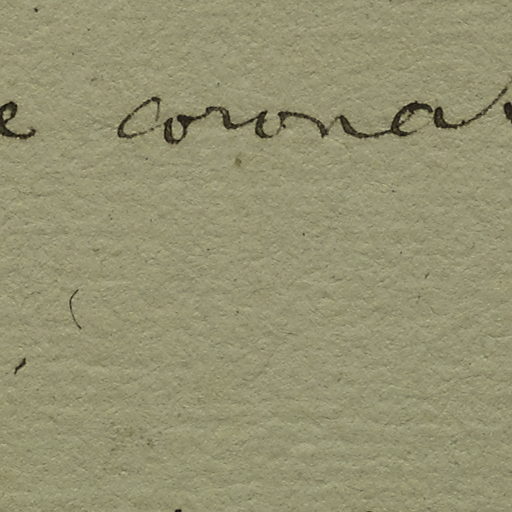 e corona